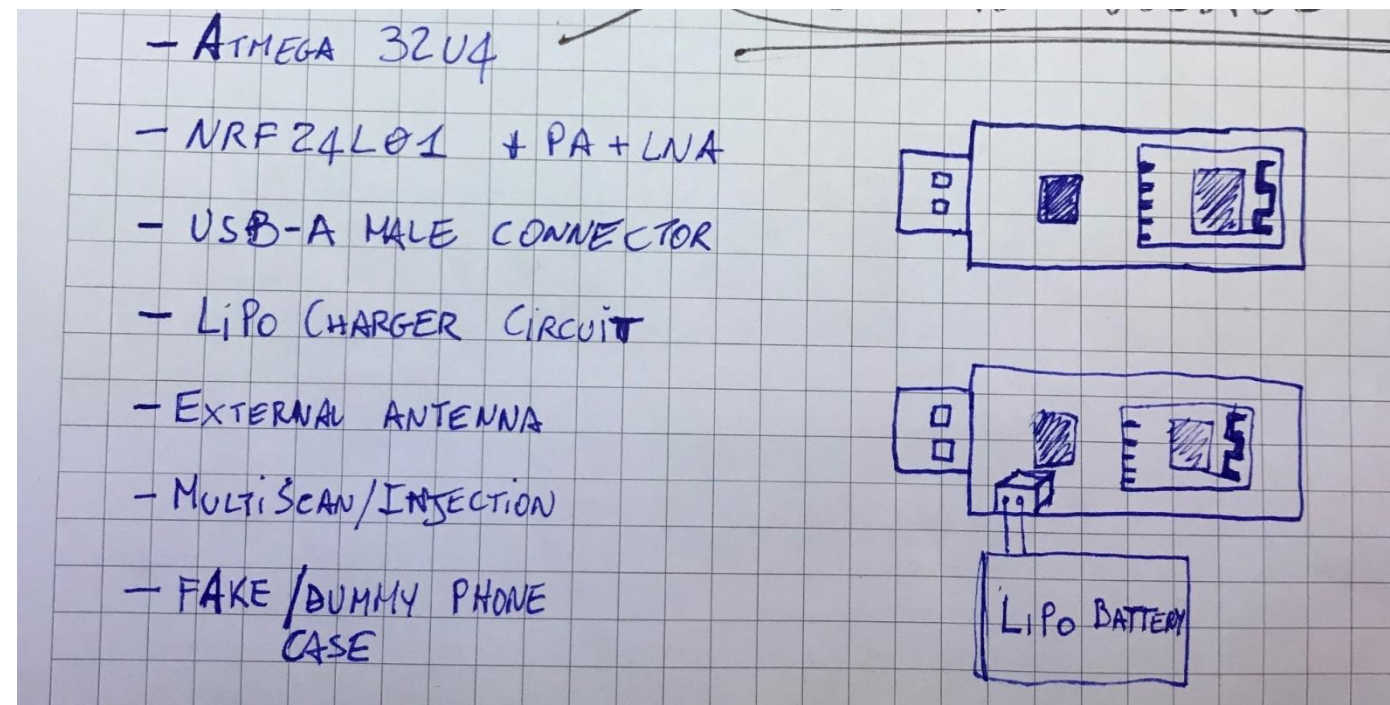 - ATMEGA 32U4
- NRF24L01 + PA + LNA
- USB-A MALE CONNECTOR
- LiPo CHARGER CiRCUiT
- EXTERNAL ANTENNA
- MULTiSCAN/INJECTiON
- FAKE/DUMMY PHONE
CASE
LiPo BATTERY